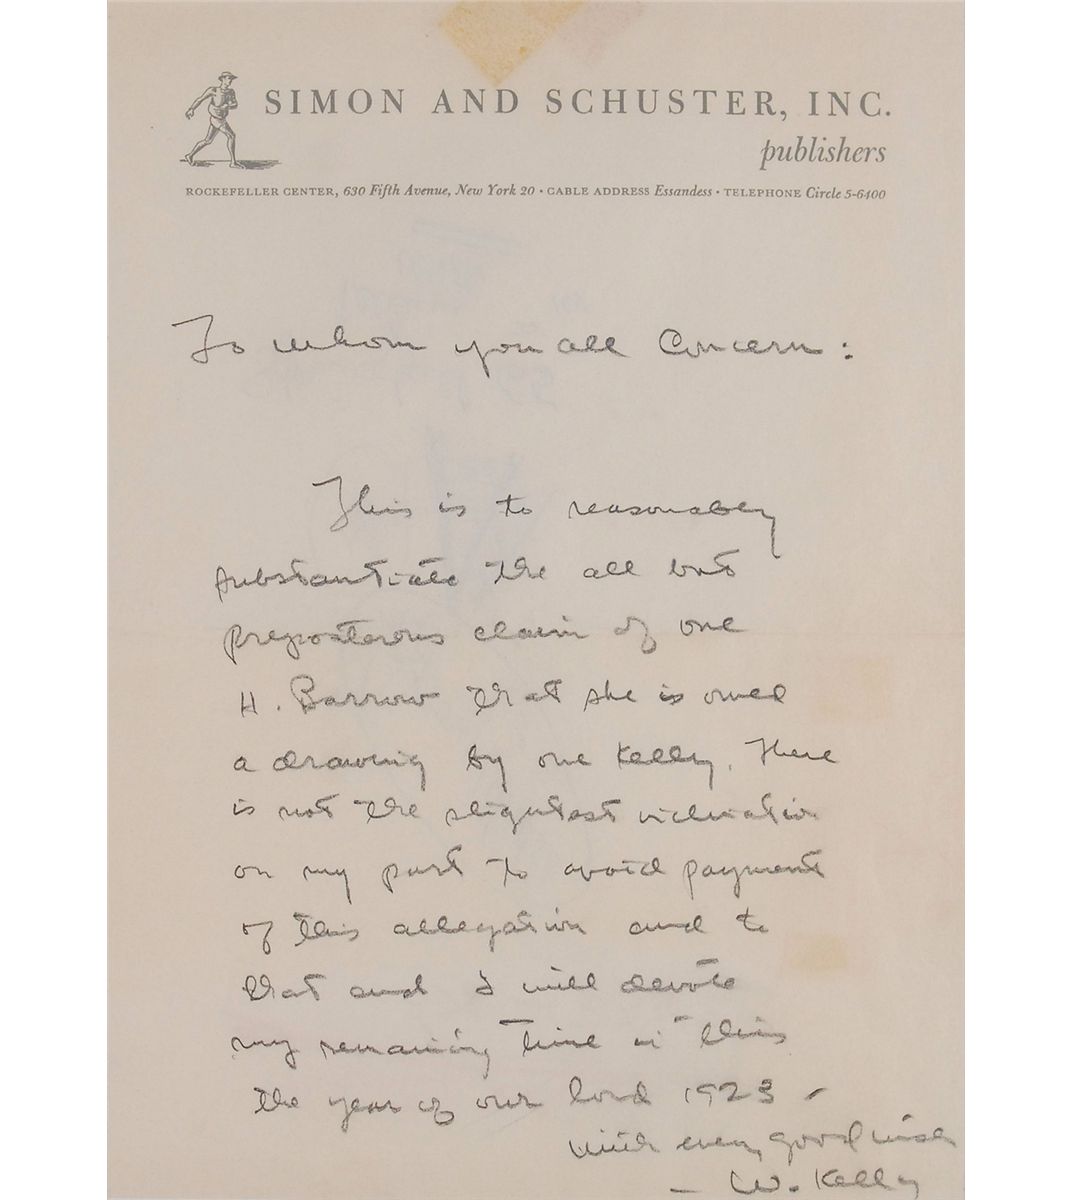 SIMON AND SCHUSTER, INC.
publishers
ROCKEFELLER CENTER, 630 Fifth Avenue, New York 20 · CABLE ADDRESS Essandess · TELEPHONE Circle 5-6400
To whom you all Concern:
This is to reasonably
substantiate the all but
preposterous claim of one
H. Barrow that she is owed
a drawing by one Kelly. There
is not the slightest inclination
on my part to avoid payment
of this allegation and to
that end I will devote
my remaining time in this
the year of our lord 1923 –
with every good wish
– W. Kelly